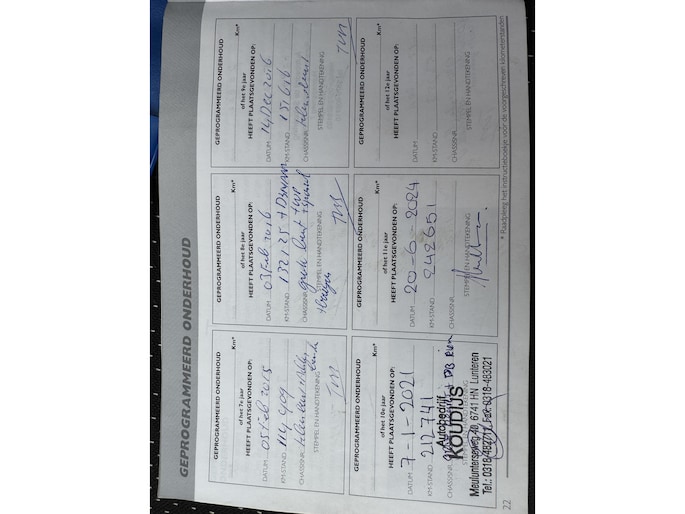 GEPROGRAMMEERD ONDERHOUD
GEPROGRAMMEERD ONDERHOUD
Km*
of het 7e jaar
HEEFT PLAATSGEVONDEN OP:
DATUM 05 Feb 2015
KM-STAND 114 409
CHASSISNR.
STEMPEL EN HANDTEKENING
GEPROGRAMMEERD ONDERHOUD
Km*
of het 8e jaar
HEEFT PLAATSGEVONDEN OP:
DATUM 03 Feb 2016
KM-STAND 132125
CHASSISNR. grote beurt
STEMPEL EN HANDTEKENING
GEPROGRAMMEERD ONDERHOUD
Km*
of het 9e jaar
HEEFT PLAATSGEVONDEN OP:
DATUM 14 Dec 2016
KM-STAND 151616
CHASSISNR.
STEMPEL EN HANDTEKENING
GEPROGRAMMEERD ONDERHOUD
Km*
of het 10e jaar
HEEFT PLAATSGEVONDEN OP:
DATUM 7-1-2021
KM-STAND 212741
CHASSISNR.
Autobedrijf
KOUDIJS
Meulunterseweg 40, 6741 HN Lunteren
Tel.: 0318-482717, Fax 0318-483021
GEPROGRAMMEERD ONDERHOUD
Km*
of het 11e jaar
HEEFT PLAATSGEVONDEN OP:
DATUM 20-6-2024
KM-STAND 242651
CHASSISNR.
STEMPEL EN HANDTEKENING
GEPROGRAMMEERD ONDERHOUD
Km*
of het 12e jaar
HEEFT PLAATSGEVONDEN OP:
DATUM
KM-STAND
CHASSISNR.
STEMPEL EN HANDTEKENING
22
* Raadpleeg het instructieboekje vóór de voorgeschreven kilometerstanden